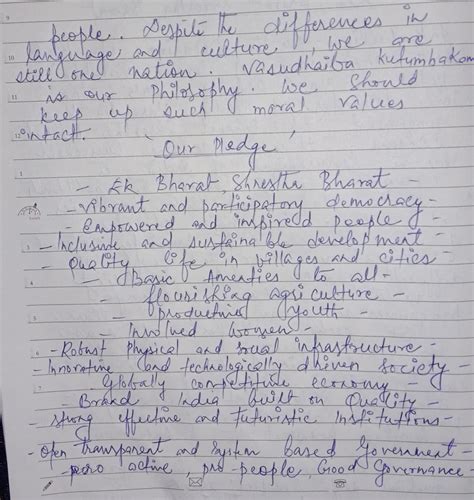 people. Despite the differences in
language and culture, we are
still one nation. Vasudhaiba Kutumbakam
is our Philosophy. We should
keep up such moral values
intact.
'Our Pledge'
- Ek Bharat, Shrestha Bharat -
- Vibrant and participatory democracy -
- Empowered and inspired people -
- Inclusive and sustainable development -
- Quality life in villages and cities
- Basic Amenties to all -
- flourishing agriculture -
- productive youth -
- Involved women -
- Robust Physical and social infrastructure -
- Innovative and technologically driven society -
- Globally competitive economy -
- Brand India built on Quality -
- strong effective and futuristic Institutions -
- open transparent and system based Government -
- pero active, pro-people, Good Governance -